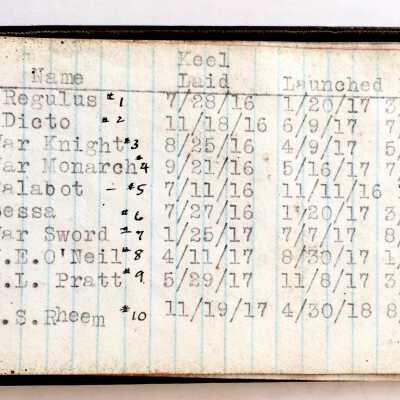 Keel
Name Laid Launched
Regulus #1 7/28/16 1/20/17 3
Dicto #2 11/18/16 6/9/17 7
War Knight #3 8/25/16 4/9/17 5
War Monarch #4 9/21/16 5/16/17 7
alabot - #5 7/11/16 11/11/16
essa #6 7/27/16 1/20/17 3
War Sword #7 1/25/17 7/7/17 8
.E.O'Neil #8 4/11/17 8/30/17 1
.L. Pratt #9 5/29/17 11/8/17 3
.S.Rheem #10 11/19/17 4/30/18 8